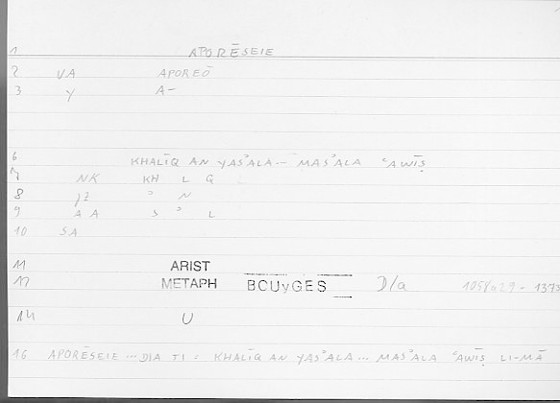 1 APORĒSEIE
2 VA APOREŌ
3 Y A-
6 KHALĪQ AN YAS'ALA - MAS'ALA ʿAWĪṢ
7 NK KH L Q
8 ' N
9 A A S ' L
10 SA
11 ARIST
METAPH BOUyGES D/a
14 U
16 APORĒSEIE ... DIA TI : KHALĪQ AN YAS'ALA ... MAS'ALA ʿAWĪṢ LI-MĀ